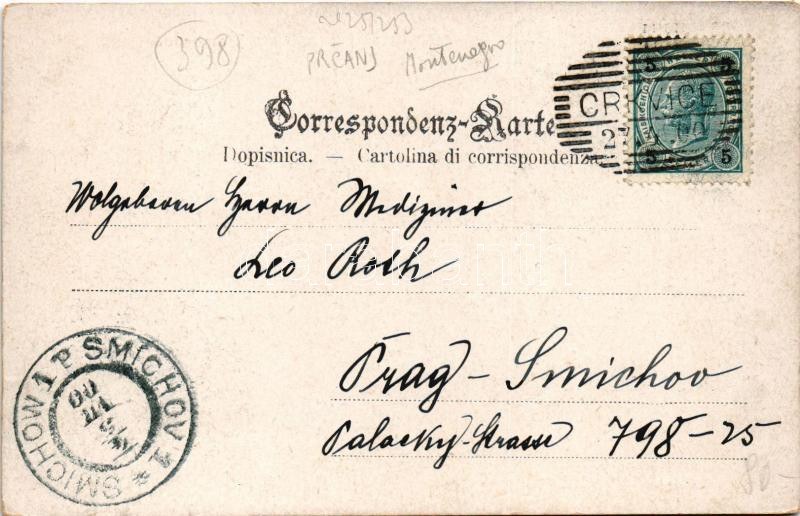 398
PRČANJ Montenegro
5 5
CRKVICE
27
5 5
Correspondenz-Karte
Dopisnica. — Cartolina di corrispondenza.
Wolgeboren Herrn Mediziner
Leo Roth
Prag - Smichov
Palacky-Strasse 798-25
SMICHOW 1 P SMICHOV 1
80-